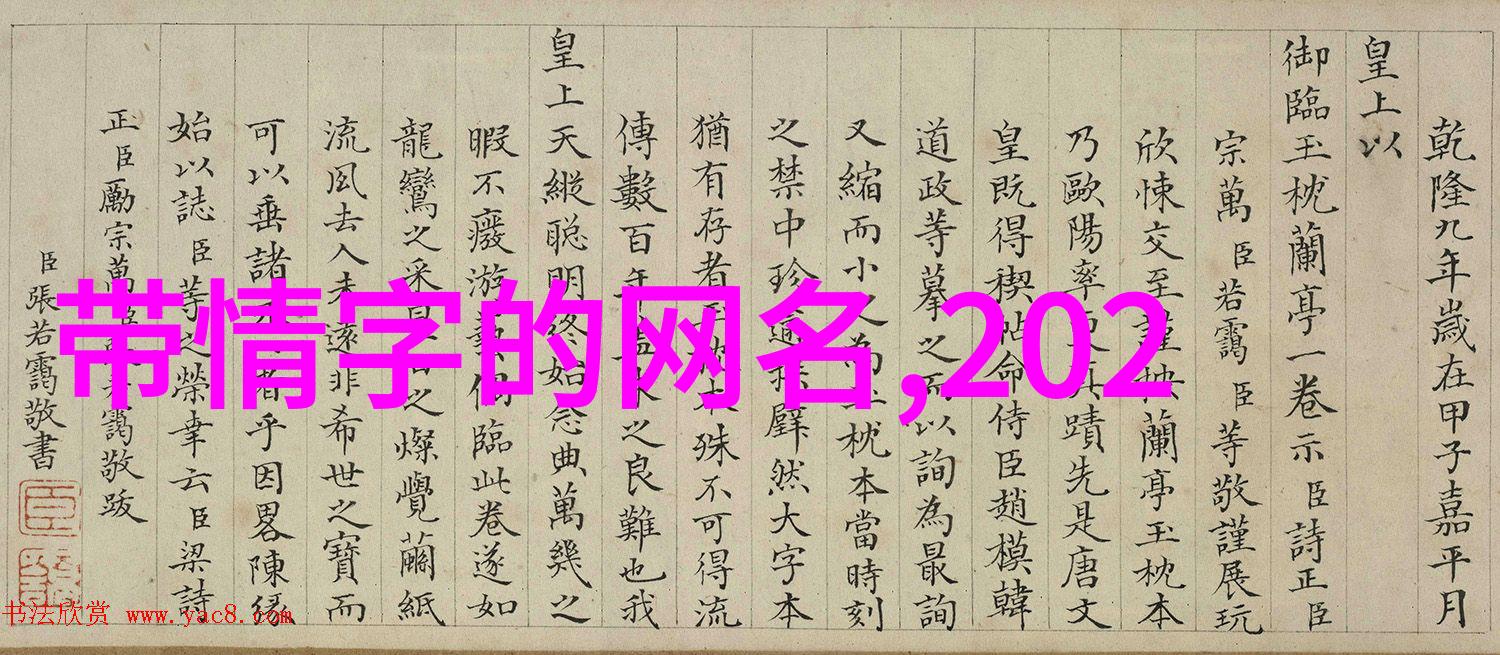 乾隆九年歲在甲子嘉平月
皇上以
御臨玉枕蘭亭一卷示臣詩正臣
宗萬臣若靄臣等敬謹展玩
欣悚交至謹按蘭亭玉枕本
乃歐陽率更真蹟先是唐文
皇既得禊帖命侍臣趙模韓
道政等摹之而以詢為最詢
又縮而小之為玉枕本當時刻
之禁中珍逾拱璧然大字本
猶有存者玉枕本殊不可得流
傳數百年蓋本之良難也我
皇上天縱聰明終始念典萬幾之
暇不癈游藝偶臨此卷遂如
龍鸞之采日星之燦覺繭紙
流風去人未遠非希世之寶而
可以垂諸不朽者乎因畧陳緣
始以誌臣等之榮幸云臣梁詩
正臣勵宗萬臣張若靄敬跋
臣張若靄敬書
臣
带情字的网名,202
书法欣赏 www.yac8.com